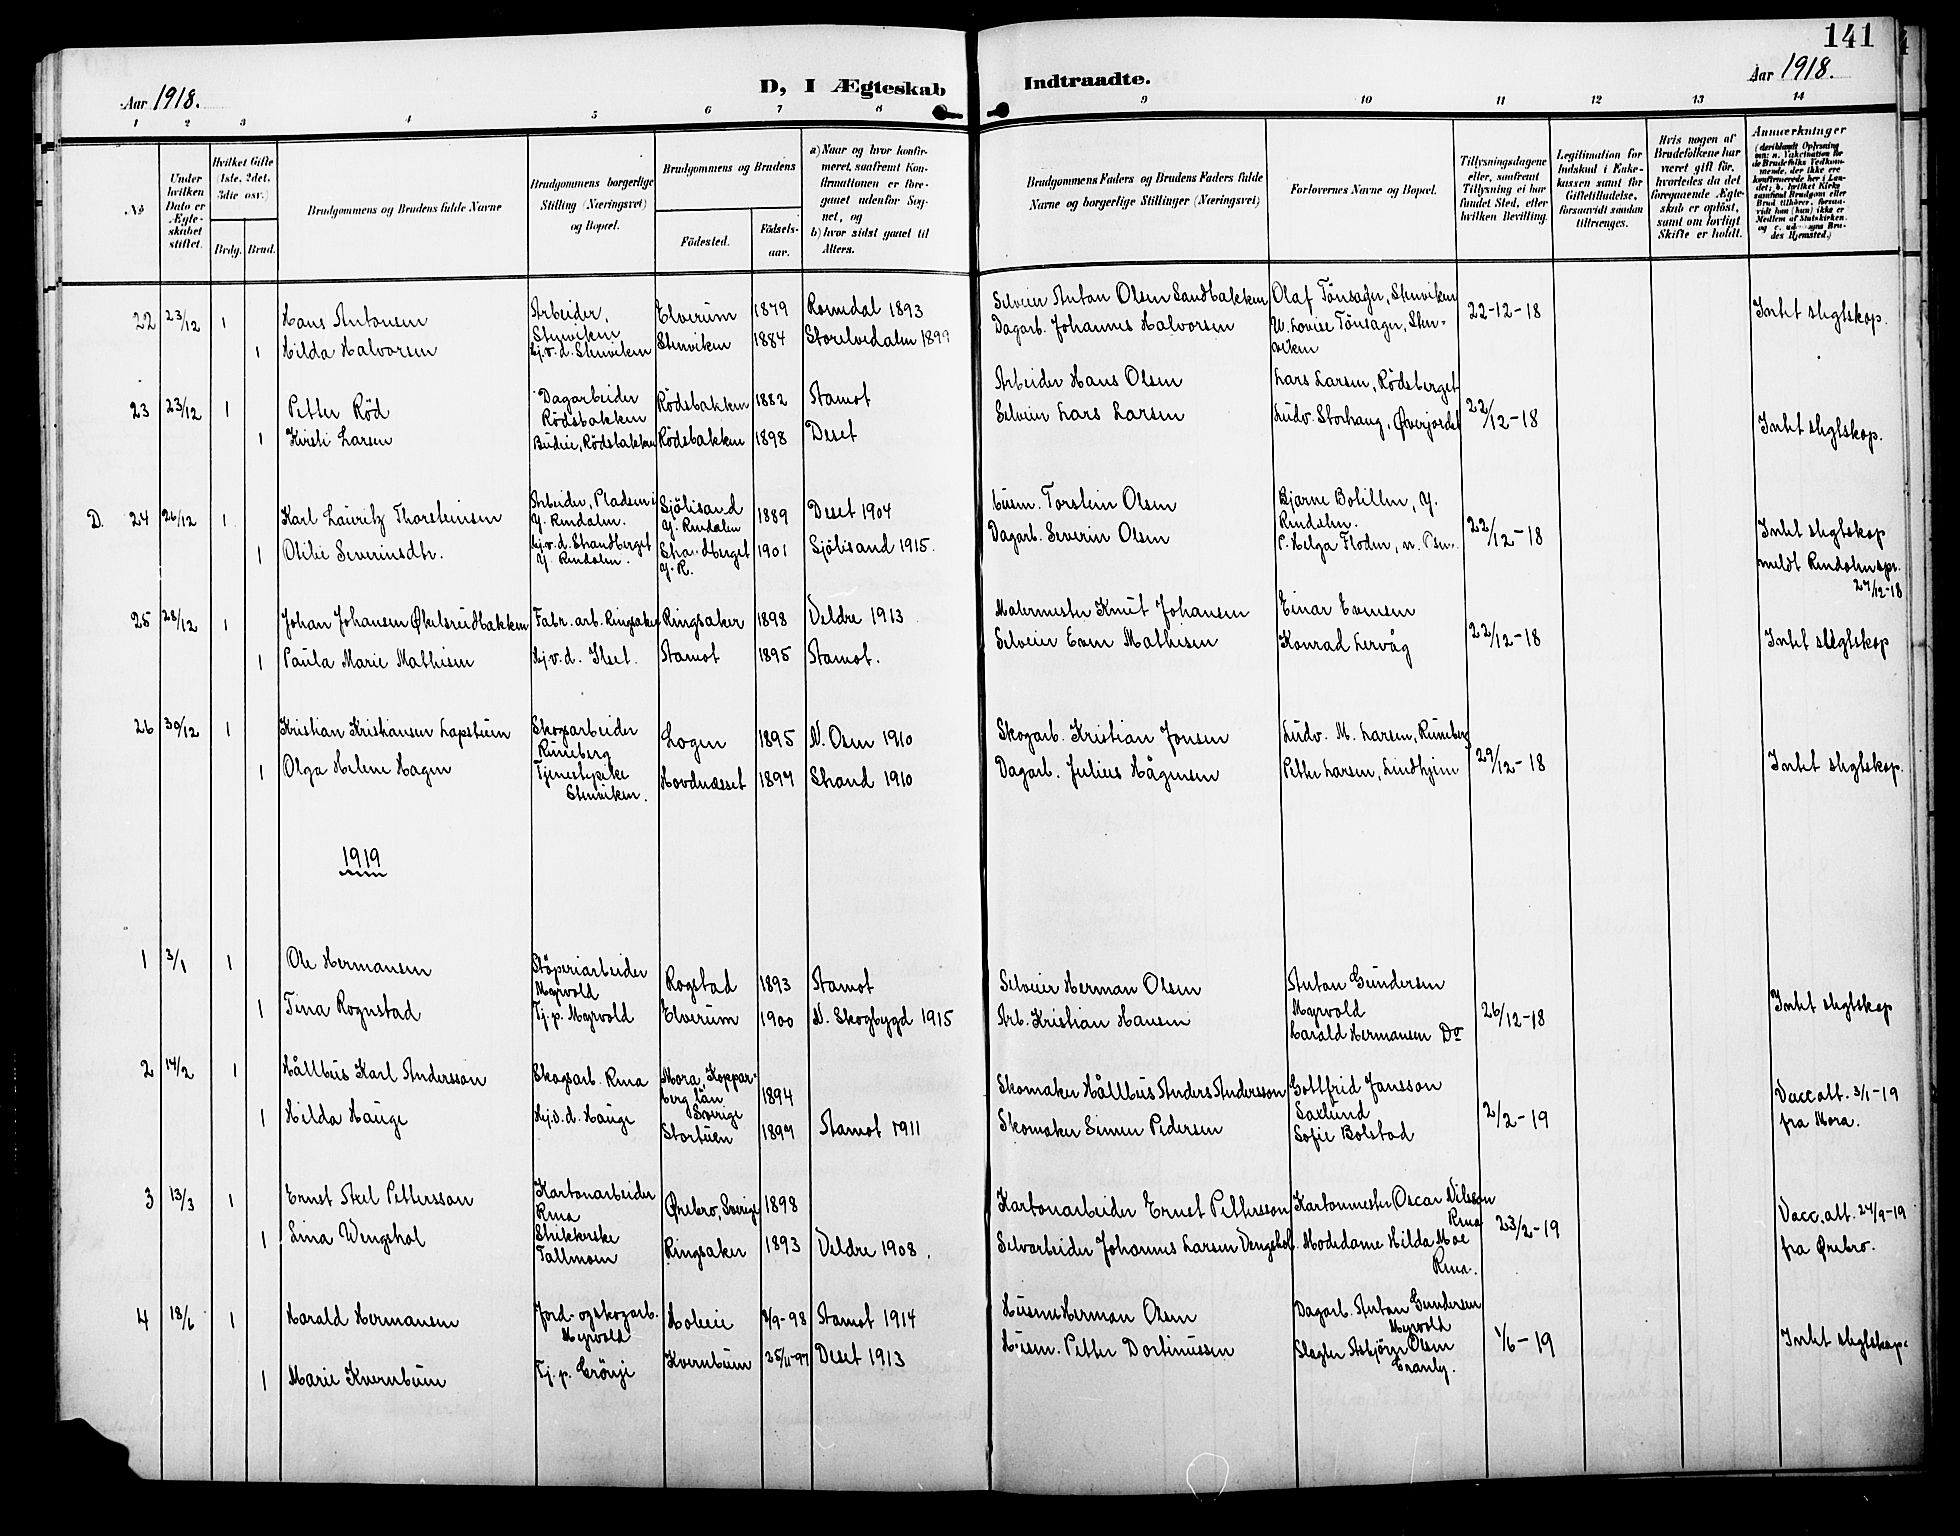 141
Aar 1918.
D, I Ægteskab Indtraadte.
Aar 1918.
1 2 3 4 5 6 7 8 9 10 11 12 13 14
No
Under hvilken Dato er Ægteskabet stiftet.
Hvilket Gifte (1ste, 2det, 3die osv.)
Brdg. Brud.
Brudgommens og Brudens fulde Navne
Brudgommens borgerlige Stilling (Næringsvei) og Bopæl.
Brudgommens og Brudens
Födested.
Födselsaar.
a) Naar og hvor konfirmeret, saafremt Konfirmationen er foregaaet udenfor Sognet, og
b) hvor sidst gaaet til Alters.
Brudgommens Faders og Brudens Faders fulde Navne og borgerlige Stillinger (Næringsvei)
Forlovernes Navne og Bopæl.
Tillysningsdagene eller, saafremt Tillysning ei har fundet Sted, efter hvilken Bevilling.
Legitimation for Indskud i Enkekassen samt for Giftetilladelse, forsaavidt saadan tiltrænges.
Hvis nogen af Brudefolkene har været gift för, hvorledes da det foregaaende Ægteskab er oplöst, samt om lovligt Skifte er holdt.
Anmerkninger
22 23/12 1 Hans Antonsen Arbeider, Stenviken Elverum 1879 Romedal 1893 Selveier Anton Olsen Sandbakken Olaf Tönsager, Stenviken 22-12-18 Intet slegtskap.
1 Hilda Halvorsen Hj.v.d. Stenviken Stenviken 1884 Storelvedalen 1899 Dagarb. Johannes Halvorsen W. Lovise Tönsager, Stenviken
23 23/12 1 Petter Röd Dagarbeider Rödsbakken Rödsbakken 1882 Stamot Arbeider Hans Olsen Lars Larsen, Rödsberget 22/12-18 Intet slegtskap.
1 Kristi Larsen Budeie, Rödsbakken Rödsbakken 1898 Deset Selveier Lars Larsen Ludv. Storhaug, Øverjordet
D. 24 26/12 1 Karl Lauritz Thorsteinsen Arbeider, Pladsen i Y. Rendalen. Sjölisand Y. Rendalen 1889 Deset 1904 Husm. Torstein Olsen Bjarne Botillen, Y. Rendalen. 22/12-18 Intet slegtskap
1 Otilie Severinsdtr. Hj.v.d. Strandberget Y. Rendalen. Y. R. 1901 Sjölisand 1915. Dagarb. Severin Olsen P. Helga Floden,
meldt Rendalen spr. 27/12-18
25 28/12 1 Johan Johansen Økelsrudbakken Fabr.arb. Ringsaker Ringsaker 1898 Veldre 1913 Malermester Knut Johansen Einar Evensen 22/12-18 Intet slegtskap
1 Paula Marie Mathisen Hj.v.d. Ilset. Stamot 1895 Stamot. Selveier Even Mathisen Konrad Lervåg
26 30/12 1 Kristian Kristiansen Lapstuen Skogsarbeider Runeberg Logen 1895 N. Osen 1910 Skogarb. Kristian Jonsen Ludv. M. Larsen, Runeberg 29/12-18 Intet slegtskap.
1 Olga Helene Hagen Tjenestepike Stenviken. Hovdnæsset 1897 Strand 1910 Dagarb. Julius Hågensen Petter Larsen, Lindhjem
1919
1 3/1 1 Ole Hermansen Stöperiarbeider Myrvold Rogstad 1893 Stamot Selveier Herman Olsen Anton Gundersen Myrvold 26/12-18 Intet slegtskap
1 Tina Rognstad Tj.p. Myrvold Elverum 1900 N. Skogbygd 1915 Arb. Kristian Hansen Harald Hermansen Do
2 14/2 1 Hållbus Karl Andersson Skogsarb. Rena Mora, Kopparberg län Sverige 1894 Skomaker Hållbus Anders Andersson Gottfrid Jansson Saxlund 2/2-19 Vacc.att. 3/1-19 fra Mora.
1 Hilda Hauge Hj.v.d. Hauge Stortuen 1897 Stamot 1911 Skomaker Simen Pedersen Sofie Bolstad
3 13/3 1 Ernst Axel Pettersson Kartonarbeider Rena Ørebro, Sverige 1898 Kartonarbeider Ernst Pettersson Kartonmester Oscar Nilsson Rena 23/2-19 Vacc.att. 27/9-19 fra Ørebro.
1 Lina Wengshol Strikkerske Tallmoen Ringsaker 1893 Veldre 1908. Selvarbeider Johannes Larsen Vengshol. Modedame Hilda Moe Rena.
4 18/6 1 Harald Hermansen Jord- og skogarb. Myrvold Holeie 3/9-98 Stamot 1914 Husm. Herman Olsen Dagarb. Anton Gundersen Myrvold 1/6-19 Intet slegtskap.
1 Marie Kvernbuen Tj.p. Grönji Kvernbuen 25/11-97 Deset 1913 Husm. Petter Dortinussen Slagter Asbjörn Olsen Granly.